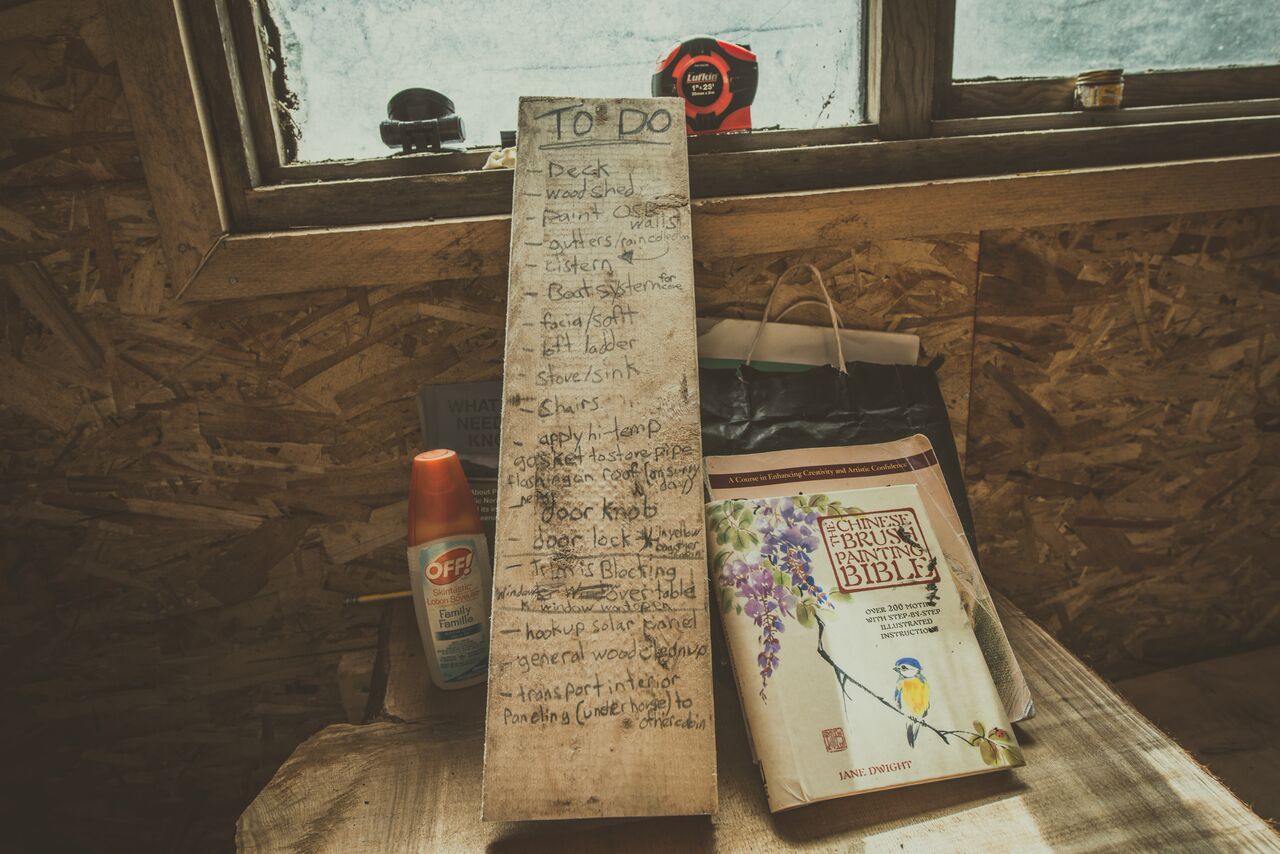 Lufkin
1" x 25'
TO DO
- Deck
- woodshed
- paint OSB
walls
- gutters/rain collection
- cistern
- Boat system for
- facia/sofit
- loft ladder
- stove/sink
- Chairs
- apply hi-temp
gasket to stove pipe
flashing on roof (on sunny
day)
- door knob
- door lock
in yellow
- Trim is Blocking
window over table
window won't open
- hookup solar panel
- general wood cleanup
- transport interior
Paneling (under horse) to
other cabin
WHAT
NEED
KN
About P
OFF!
Skintastic
Family
Famille
A Course in Enhancing Creativity and Artistic Confidence
THE
CHINESE
BRUSH
PAINTING
BIBLE
OVER 200 MOTIFS
WITH STEP-BY-STEP
ILLUSTRATED
INSTRUCTIONS
JANE DWIGHT